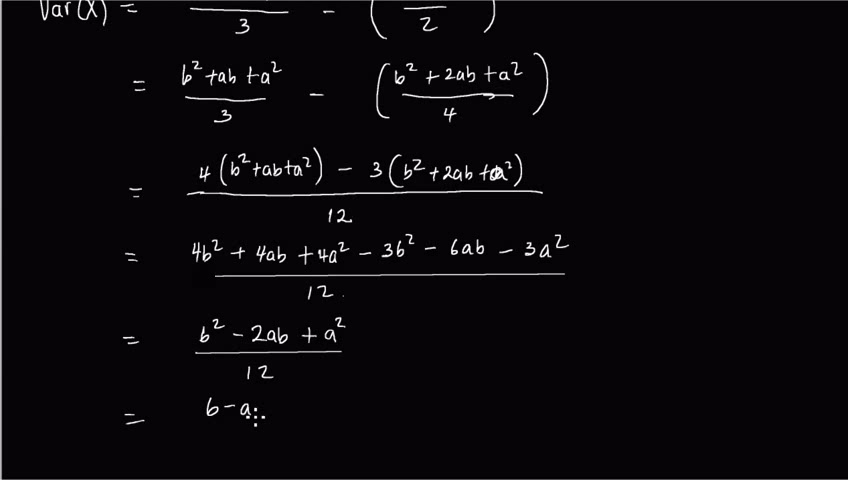 Var(X) = ─── / 3 - ( ─── / 2 )
= (b² + ab + a²) / 3 - ( (b² + 2ab + a²) / 4 )
= (4(b² + ab + a²) - 3(b² + 2ab + a²)) / 12
= (4b² + 4ab + 4a² - 3b² - 6ab - 3a²) / 12.
= (b² - 2ab + a²) / 12
= b - a